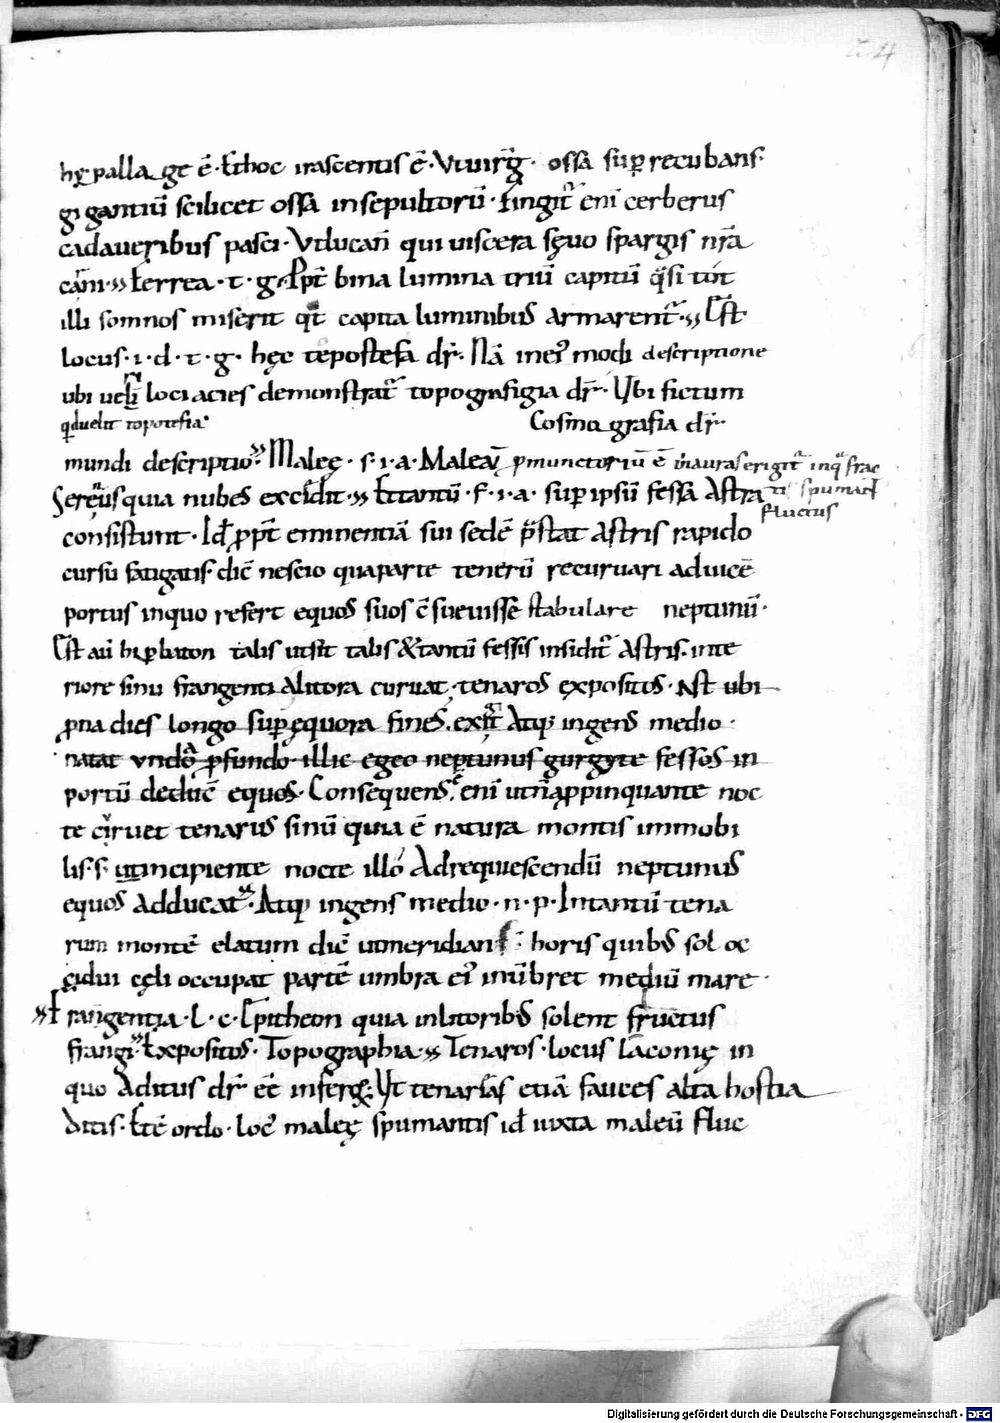 hẏpallage ē · Et hoc irascentis ē · Vt uirg̅ · ossa sup̱ recubans ·
gigantiū scilicet ossa insepultorū · Fingit᷑ eni cerberus
cadaueribus pasci · Vt lucan̄ qui uiscera sęuo spargis nr̄a
cani · Ferrea · t · g · Ppt̄ bina lumina triū capitū q̄si tot
illi somnos miserit qt̄ capita luminibus armarent᷑ · Est
locus · i · d · t · g · hęc topostesa dr̄ · Nā inei᷒ modi descriptione
ubi ueri loci acies demonstrat᷑ topografigia dr̄ · Vbi fictum
qđ uelit topotesia ·
Cosmografia dr̄ ·
mundi descriptio · Maleę · s · i · a · Maleai p̱munctoriū ē inaura serigit᷑ inq̄ frac
ti spumant
fluctus
quia nubes excedit · Et tantū · f · i · a · sup̱ ipsū fessa Astra
consistunt · Id ꝓpt̄ eminentiā sui sedē p̄stat Astris rapido
cursu fatigatis · dic̄ nescio qua parte tenerū recuruari ad uicē
portus inquo refert equos suos c̄sueuisse stabulare neptunū ·
Est au hip̱baton talis ut sit talis & tantū fessis insidit᷑ Astris · inte
riore sinu frangentia litora curuat · tenaros expositos · Ast ubi
ꝓna dies longo sup̱ ęquora fines · exit᷑ Atq; ingens medio ·
natat vndo ꝓfundo · illic egeo neptunus gurgyte fessos in
portū deducē equos · Consequens · eni ut nr̄ a ꝓpinquante noc
te c̄ruet tenarus sinū quia ē natura montis immobi
lis · s · ut incipiente nocte illo Adrequiescendū neptunus
equos Adducat᷑ · Atq; ingens medio · n · p · Intantū tena
rum montē elatum dic̄ ut meridianis horis quib᷒ sol oc
cidui cęli occupat partē umbra ei᷒ inūbret mediū mare ·
Frangentia · l · c · Epitheon quia inlitorib᷒ solent fructus
frangi · Expositos · Topographia · Tenaros · locus laconię in
quo Aditus dr̄ ee̅ inferos · Vt tenarias etiā fauces alta hostia
Ditis · Et ē ordo · loc᷒ maleę spumantis id iuxta maleū fluc
Digitalisierung gefördert durch die Deutsche Forschungsgemeinschaft - DFG